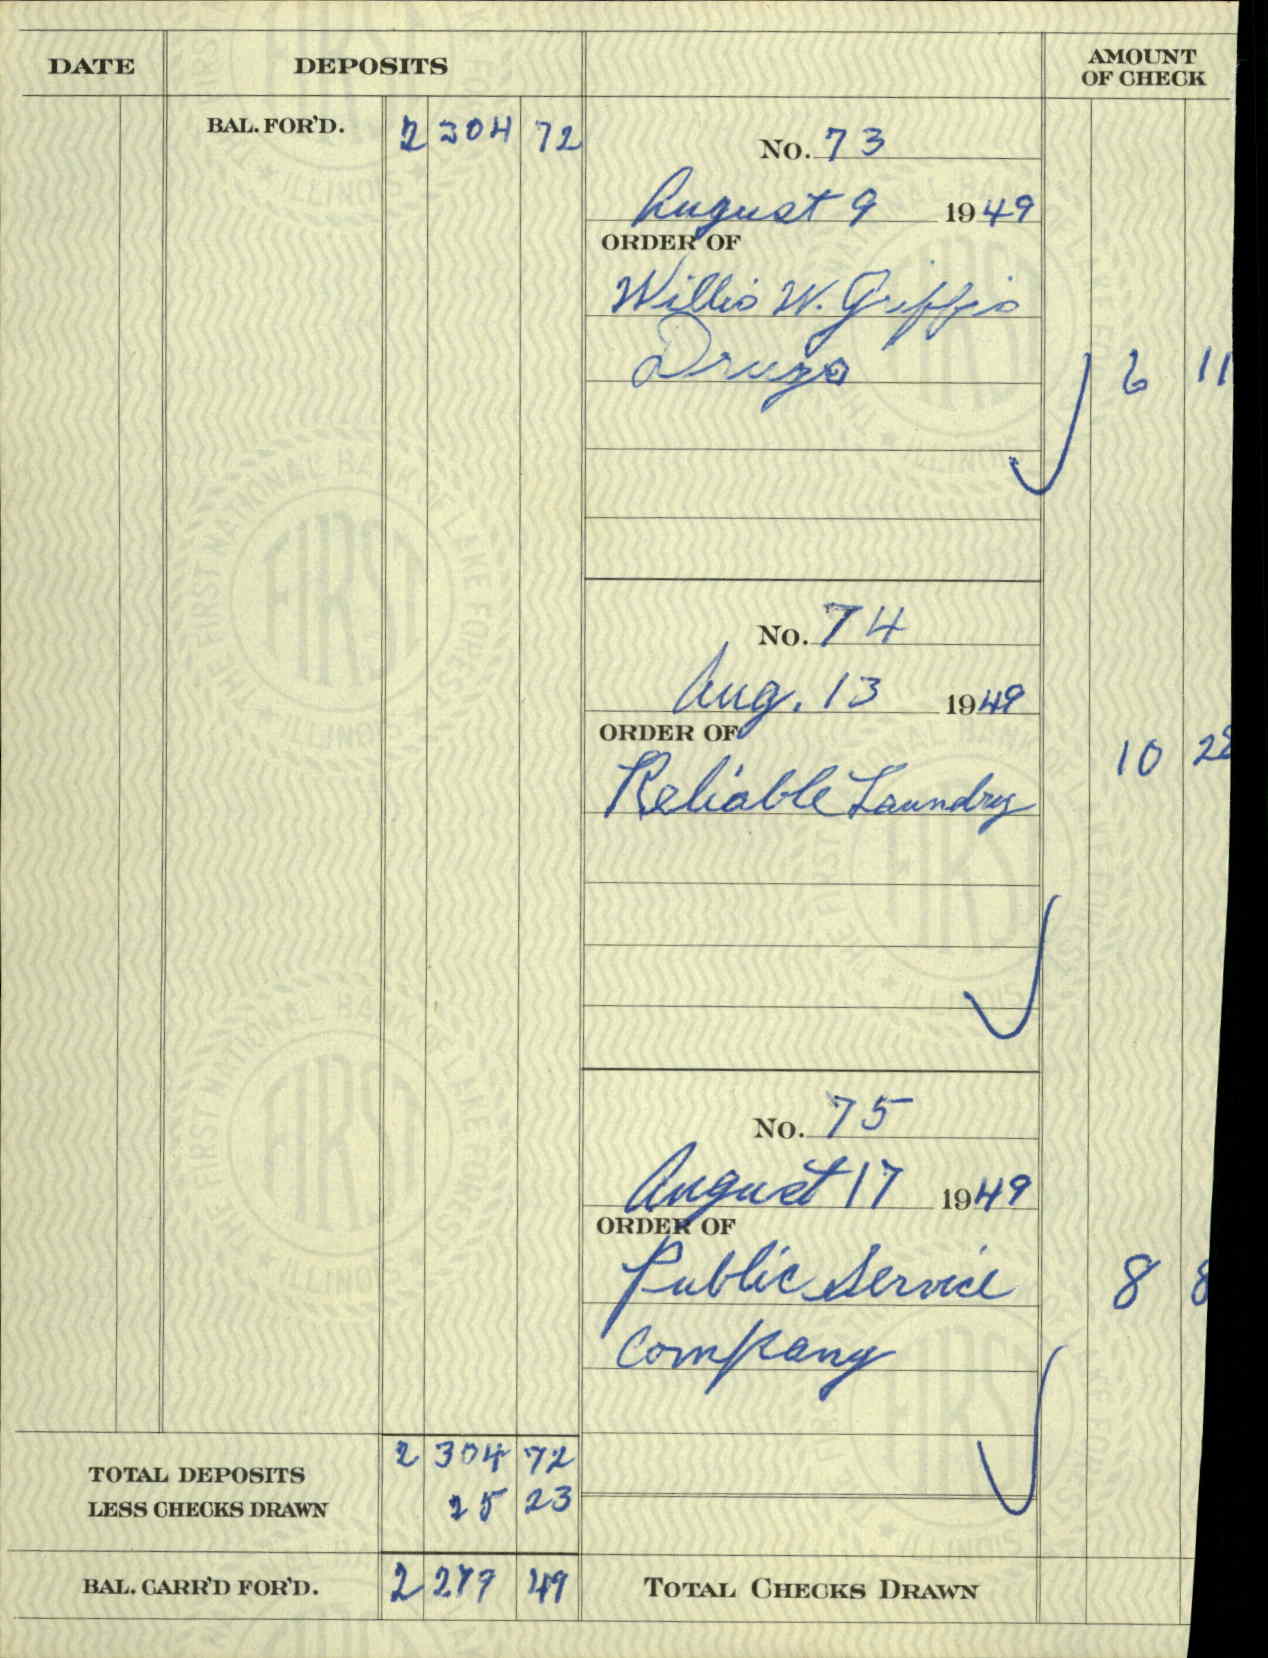 DATE DEPOSITS AMOUNT
OF CHECK
BAL. FOR'D. 2 304 72
No. 73
August 9 1949
ORDER OF
Willis W. Griffis
Drugs 6 11
No. 74
Aug. 13 1949
ORDER OF
Reliable Laundry 10 28
No. 75
August 17 1949
ORDER OF
Public Service 8 8
Company
TOTAL DEPOSITS 2 304 72
LESS CHECKS DRAWN 25 23
BAL. CARR'D FOR'D. 2 279 49 TOTAL CHECKS DRAWN